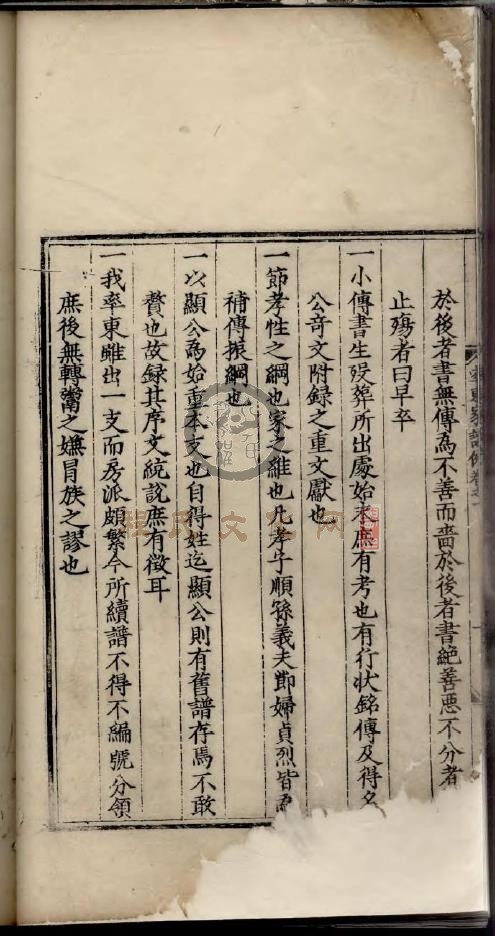 於後者書無傳為不善而嗇於後者書絕善惡不分者
止殤者曰早卒
一小傳書生歿葬所出處始末庶有考也有行狀銘傳及得名
公奇文附録之重文獻也
一節孝性之綱也家之維也凡孝子順孫義夫節婦貞烈皆為
補傳振綱也
一以顯公為始重本支也自得姓迄顯公則有舊譜存焉不敢
贅也故録其序文統說庶有徵耳
一我率東雖出一支而房派頗繁今所續譜不得不編號分領
庶後無轉鬻之嫌冒族之謬也